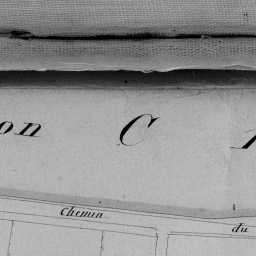 on C
Chemin du